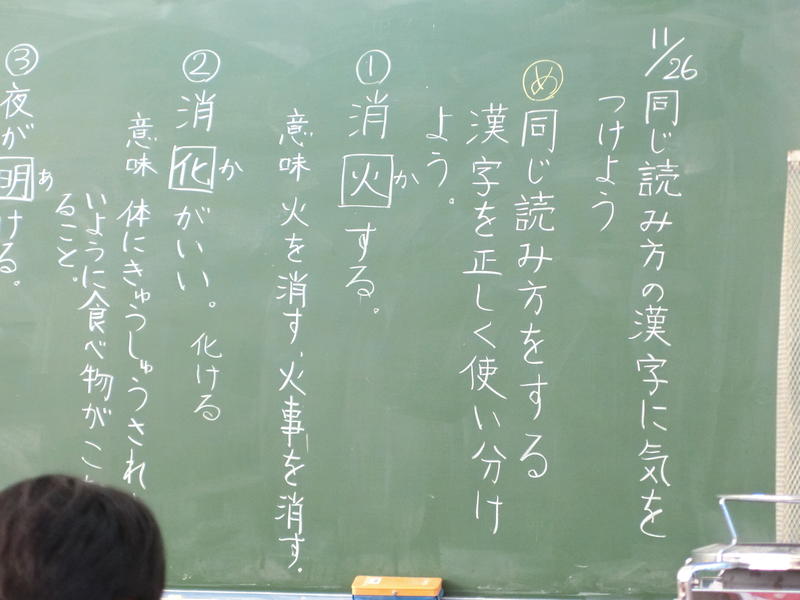 11/26
同じ読み方の漢字に気を
つけよう
め 同じ読み方をする
漢字を正しく使い分け
よう。
① 消火する。
か
意味 火を消す、火事を消す。
② 消化がいい。 化ける
か
意味 体にきゅうしゅうされ
いように食べ物がこ
ること。
③ 夜が明ける。
あ